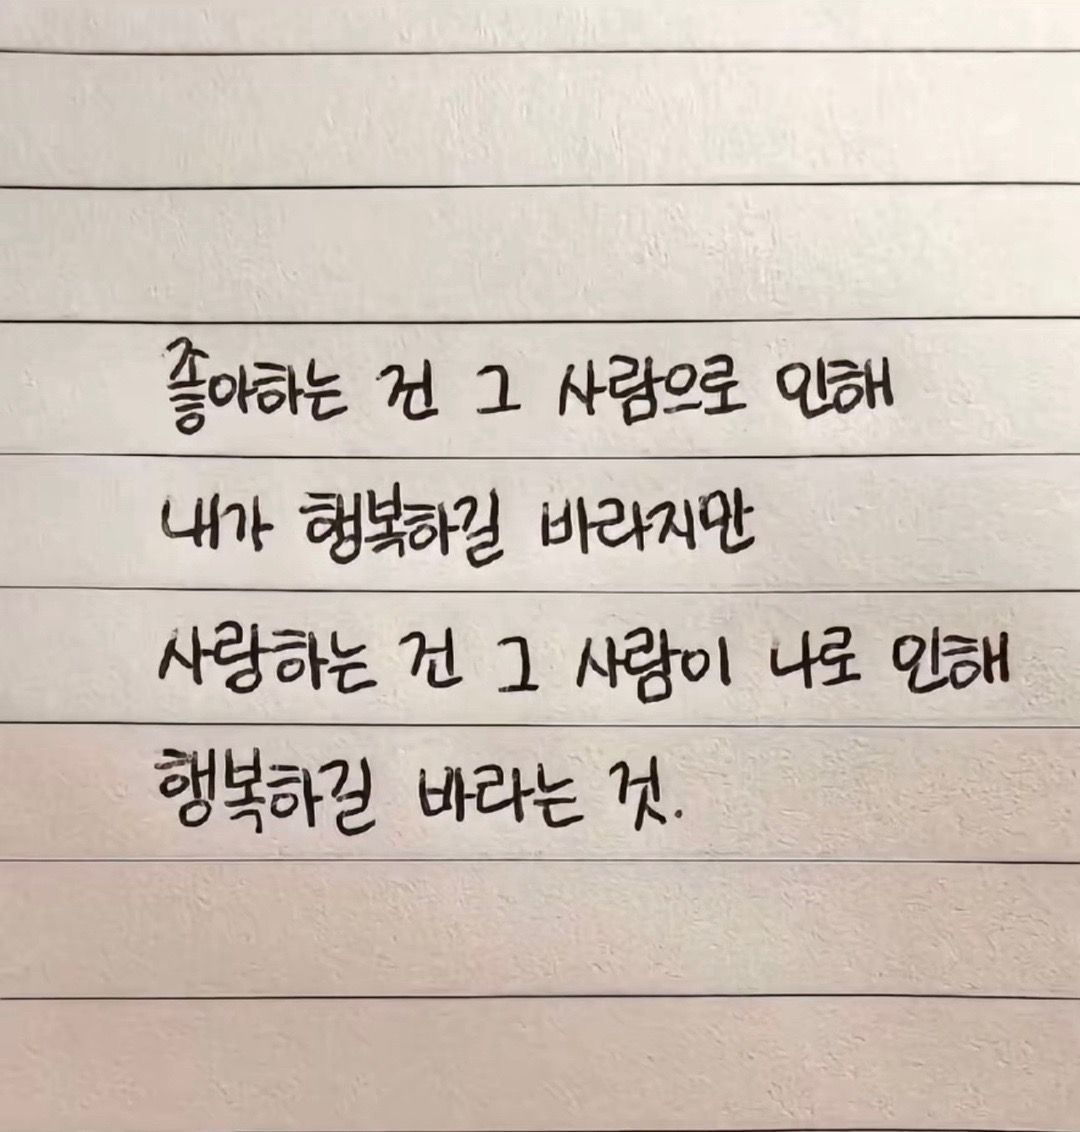 좋아하는 건 그 사람으로 인해
내가 행복하길 바라지만
사랑하는 건 그 사람이 나로 인해
행복하길 바라는 것.